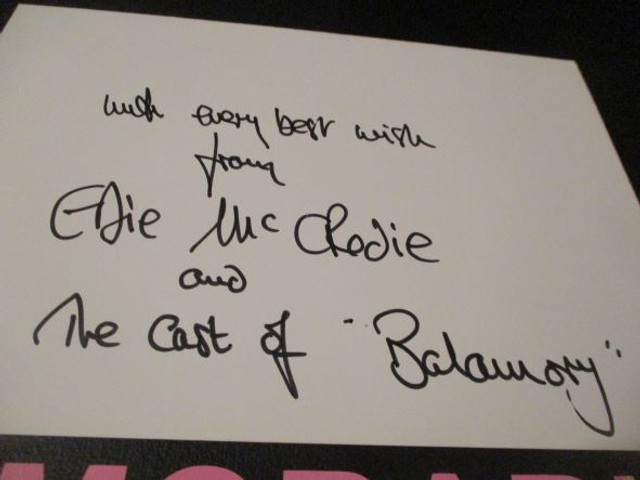 with every best wish
from
Edie McCredie
and
The Cast of "Balamory"